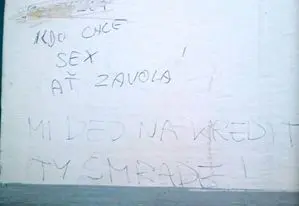 KDO CHCE
SEX
AŤ ZAVOLÁ!
MI DEJ NA KREDIT
TY SMRADE!